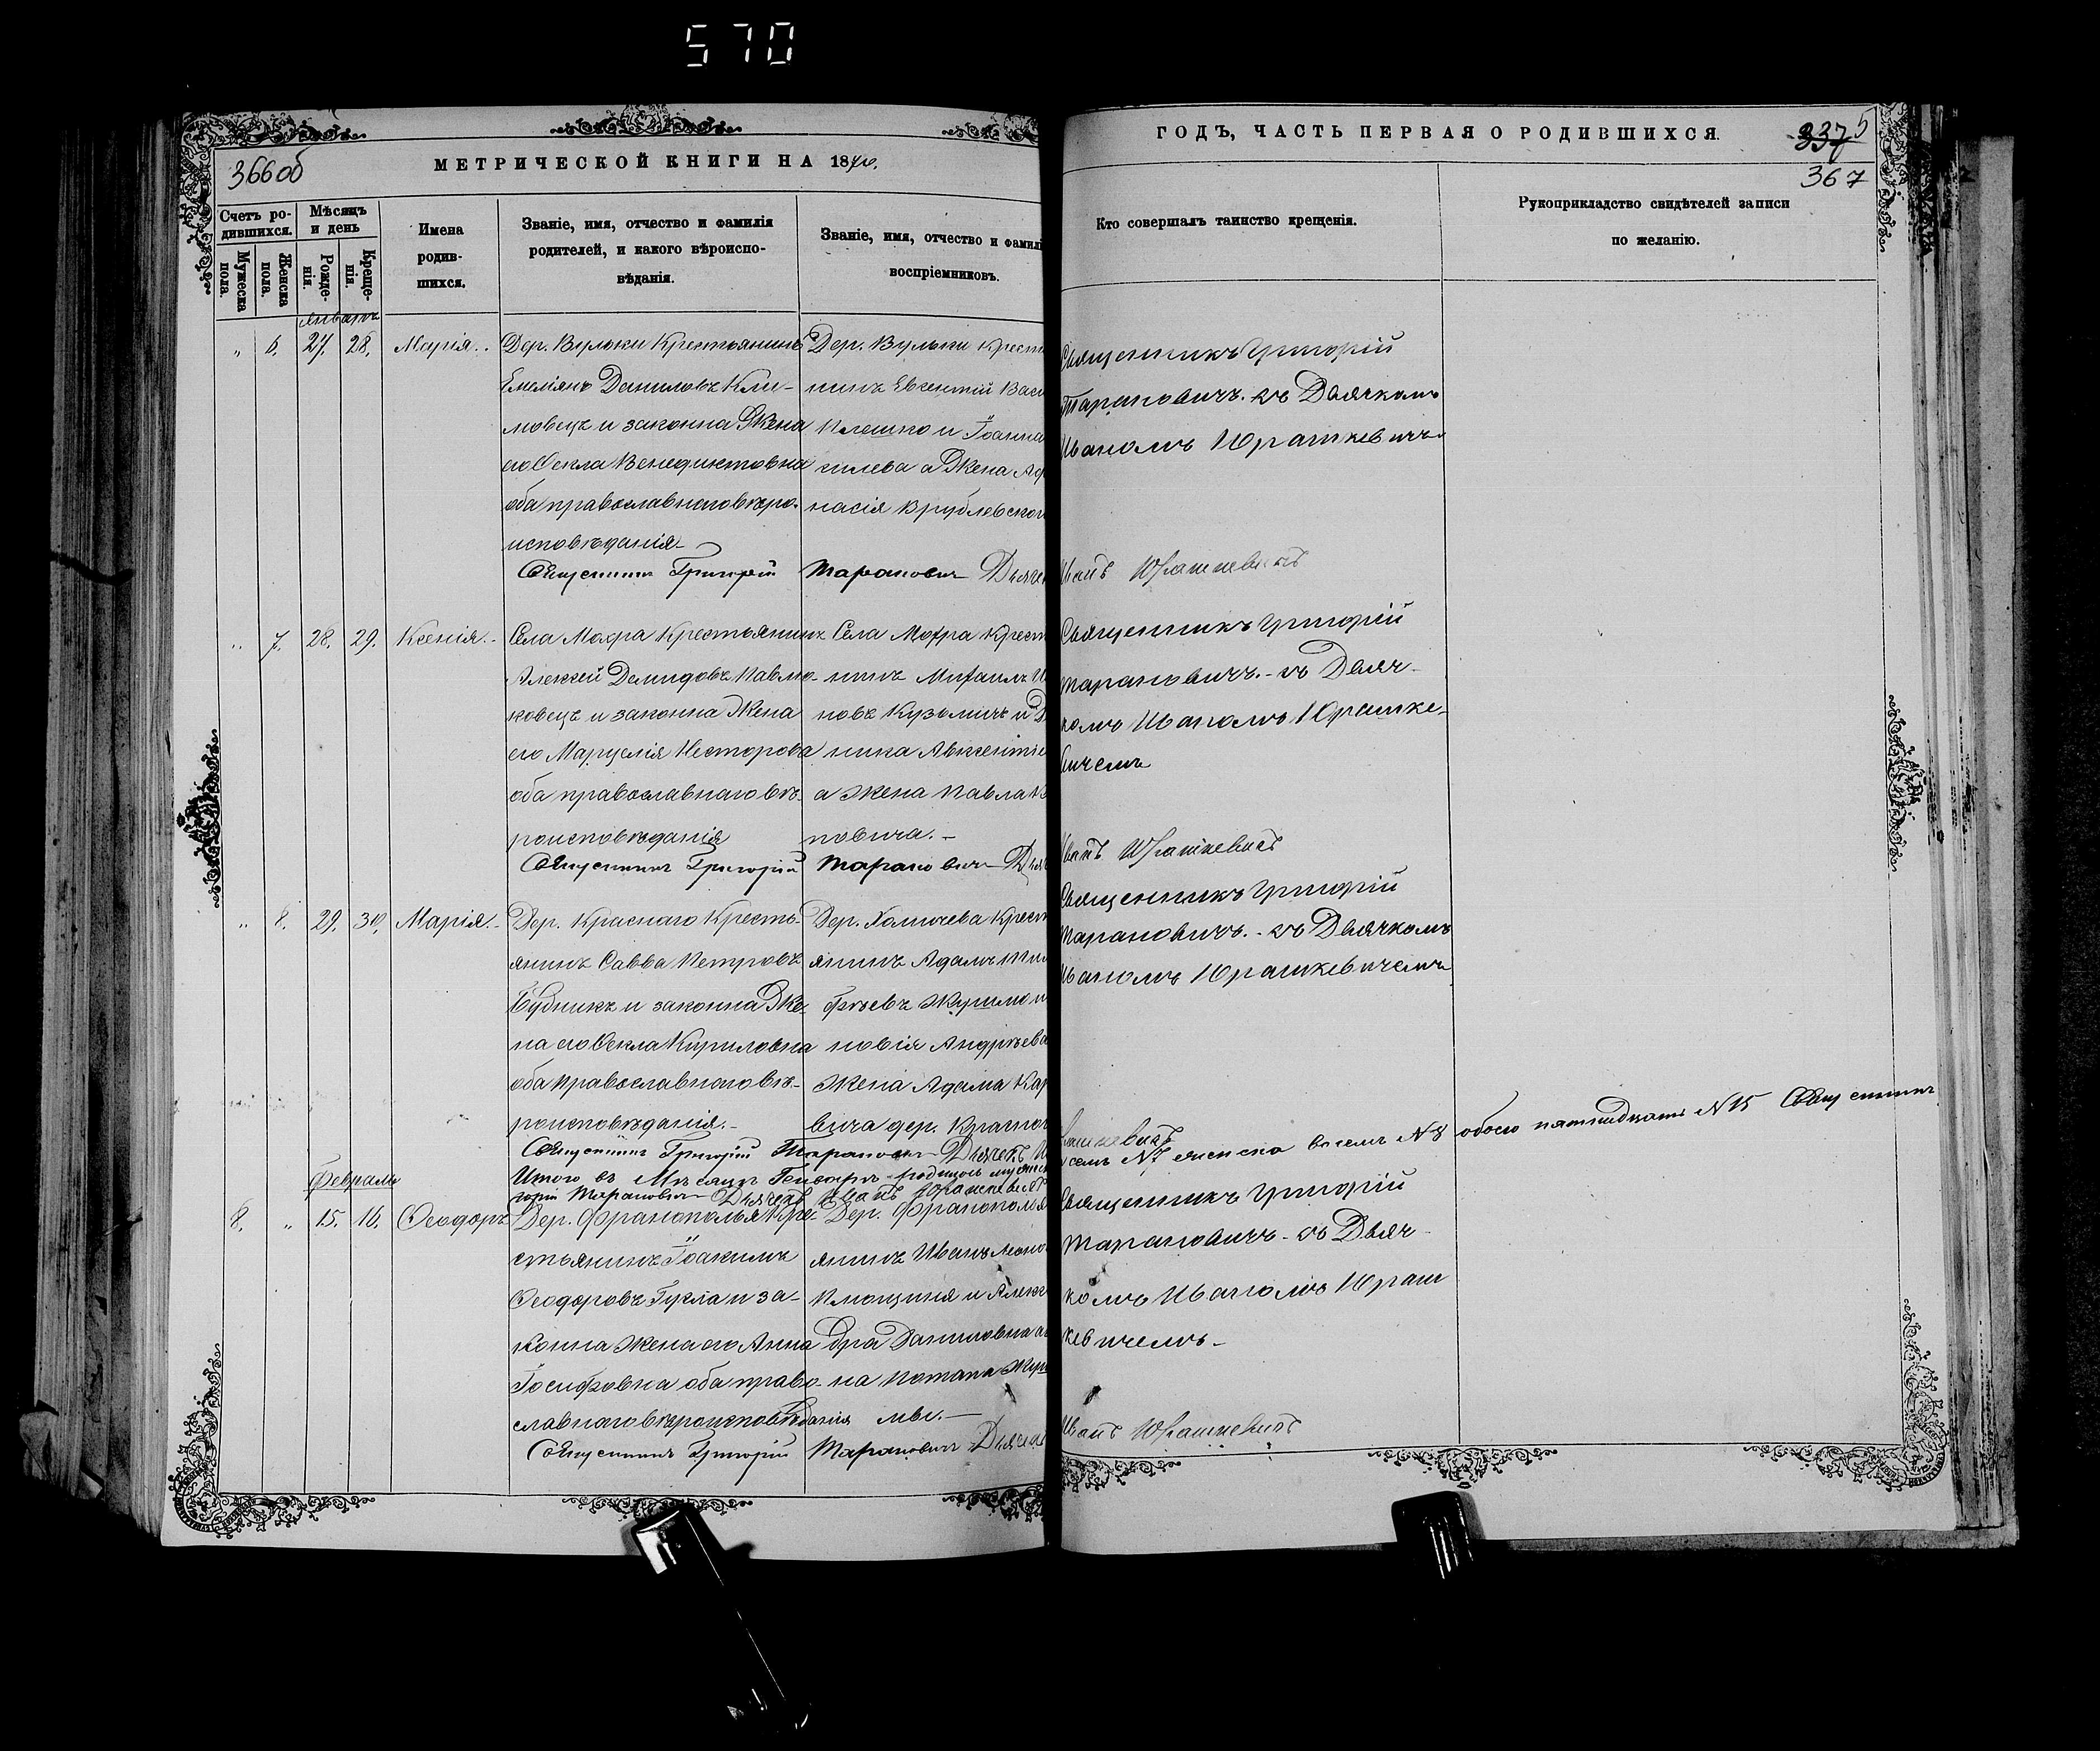 570
366об
МЕТРИЧЕСКОЙ КНИГИ НА 1870.
Счетъ родившихся.
Мужеска пола.
Женска пола.
Мѣсяцъ и день
Рожденія.
Крещенія.
Имена родившихся.
Званіе, имя, отчество и фамилія
родителей, и какого вѣроиспо-
вѣданія.
Званіе, имя, отчество и фамилі
воспріемниковъ.
Январь
„ 6. 27. 28. Марія.
Дер. Вульки Крестьянинъ
Емеліянъ Даниловъ Кли-
мовецъ и законна Жена
его Ѳекла Венедиктовна
оба православнаго вѣро-
исповѣданія
Дер. Вульки Крест
нинъ Евгентій Васи
Плешко и Іоанна
силева а Жена Аѳ
насія Врублевског
Священникъ Григорій Тарановичъ Дьяче
„ 7. 28. 29. Ксенія.
Села Мохра Крестьянинъ
Алексѣй Демидовъ Павлю-
ковецъ и законна Жена
его Марцелія Несторова
оба православнаго вѣ-
роисповѣданія
Села Мохра Крест
нинъ Михаилъ И
новъ Кузьмичъ и Д
ника Авксентіе
а Жена Павла К
новича.
Священникъ Григорій Тарановичъ Дьяч
„ 8. 29. 30. Марія.
Дер. Краснаго Кресть-
янинъ Савва Петровъ
Будникъ и законна Же-
на его Ѳекла Кириловна
оба православнаго вѣ-
роисповѣданія.
Дер. Голичева Крест
янинъ Адамъ
фѣевъ Жушмо и
новія Андрѣева
Жена Адама Кар
вича дер. Красног
Священникъ Григорій Тарановичъ Дьячекъ И
Итого въ Мѣсяцѣ Генварѣ родилось мужеск
горій Тарановичъ Дьячекъ Иванъ Юрашкевичъ
Февраль
8. „ 15. 16. Ѳеодоръ
Дер. Франополья Кре-
стьянинъ Іоакимъ
Ѳеодоровъ Гукла и за-
конна Жена его Анна
Іосифовна оба право-
славнаго вѣроисповѣданія
Дер. Франополья
янинъ Иванъ
Клющиня и Алекс
дра Даниловна
на Потапа Жуш
мы.
Священникъ Григорій Тарановичъ Дьяче
ГОДЪ, ЧАСТЬ ПЕРВАЯ О РОДИВШИХСЯ.
337
5
367
Кто совершалъ таинство крещенія.
Рукоприкладство свидѣтелей записи
по желанію.
Священникъ Григорій
Тарановичъ. съ Дьячкомъ
Иваномъ Юрашкевичъ
Иванъ Юрашкевичъ
Священникъ Григорій
Тарановичъ. съ Дьяч-
комъ Иваномъ Юрашке-
вичемъ
Иванъ Юрашкевичъ
Священникъ Григорій
Тарановичъ. съ Дьячкомъ
Иваномъ Юрашкевичемъ
рашкевичъ
семь №7 женска восемь №8 обоего пятнадцать №15 Священникъ
Священникъ Григорій
Тарановичъ съ Дьяч-
комъ Иваномъ Юраш
кевичемъ.
Иванъ Юрашкевичъ